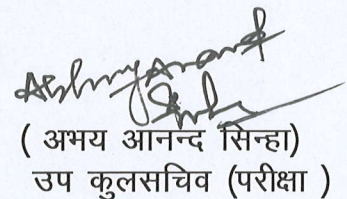 Abhay Anand
Sinha
( अभय आनन्द सिन्हा)
उप कुलसचिव (परीक्षा )